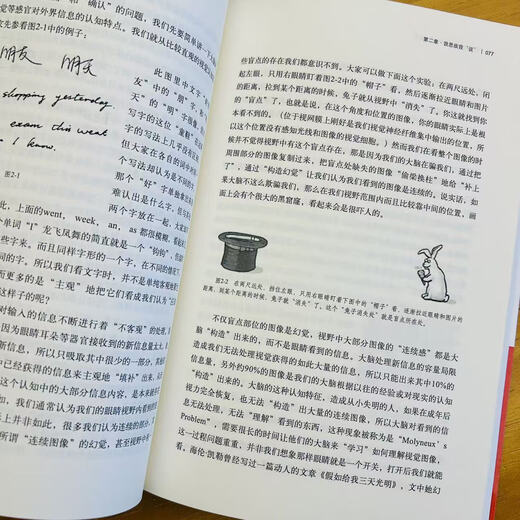 和“确认”的问题，我们先要简单讲一下
觉等感官对外界信息的认知特点。我们就从比较直观的视觉
考虑图2-1中的例子：
朋友 明天
shopping yesterday.
exam this week
I know.
图2-1
此图里中文字，“朋
友”中的“朋”字，和“明
天”的“明”字图像
写字的这位“童鞋”在
字的写法上几乎没有区
但大家在各自的词中时候
个写法却认为是不同的
个“好”字单独拿出来
难认出是什么字，但
两个字放在一起，大家
此，上面的went，week，an，as 都很模糊，
单词“I”龙飞凤舞的简直就是一个“钩钩”，但
些字来。而且同样字形的一个字，在不同的情况下
同的字。所以我们看文字时，并不是单纯客观地
而更多的是“主观”地把它们看成我们认为“
这样子的呢？
输入的信息不断进行着“不客观”的处理，
因为眼睛耳朵等器官接收到的新信息量太大，
新信息，所以只吸取其中很少的一部分，其他
中已经获得的信息来主观地“填补”出来，
这个认知中的大部分信息内容，是来自于
如，我们通常认为我们的眼睛视野内看到的
上并非如此，很多我们认为自己看到的
所谓“连续图像”的幻觉，甚至视野中
第二章：我思故我“诓” | 077
些盲点的存在我们都意识不到。大家可以做下面这个实验：在两尺远处，闭
，只用右眼睛盯着图2-2中的“帽子”看，然后逐渐拉近眼睛和图片
的距离，拉到某个距离的时候，兔子就从视野中“消失”了，你这就找到你
的“盲点”了，也就是说，在这个角度和位置的图像，你的眼睛实际上是根
本看不到的。（位于视网膜上刚好是我们视觉神经纤维集中输出的位置，所
以这个位置没有感知光线和图像的视觉细胞。）然而我们在看整个图像的时候
并不觉得视野中有这个盲点存在，那是因为我们的大脑在骗我们，通过把
周围部分的图像复制过来，把盲点处缺失的图像“偷梁换柱”地给“补上
了”，通过“构造幻觉”让我们认为我们看到的图像是连续的。说实话，如
果大脑不这么欺骗我们，那么在我们视野范围内而且比较靠中间的位置，画
面上会有个很大的黑窟窿，看起来会是很吓人的。
图2-2 在两尺远处，挡住左眼，只用右眼睛盯着下图中的“帽子”看，逐渐拉近眼睛和图片的
距离，到某个距离的时候，兔子就“消失”了，这个“兔子消失处”就是盲点所在处。
不仅盲点部位的图像是幻觉，视野中大部分图像的“连续感”都是大
脑“构造”出来的，而不是眼睛看到的信息。大脑处理新信息的容量局限
造成我们无法处理视觉获得的如此大量的信息，所以只能出来其中10%的
信息量，另外约90%的图像是我们的大脑根据以往的经验或对现实的认知
“构造”出来的。大脑的这种认知特性，造成从小失明的人，如果在成年后
视力完全恢复，也无法“构造”出大量的连续图像，所以大脑对获得的信
息无法处理，无法“理解”看到的东西，这种现象被称为是“Molyneux's
Problem”，需要很长的时间让他们的大脑来“学习”如何理解视觉图像，
这一过程问题重重，并非我们想象那样眼睛就是一个开关，打开后我们就能
看。海伦·凯勒曾经写过一篇动人的文章《假如给我三天光明》，文中她幻